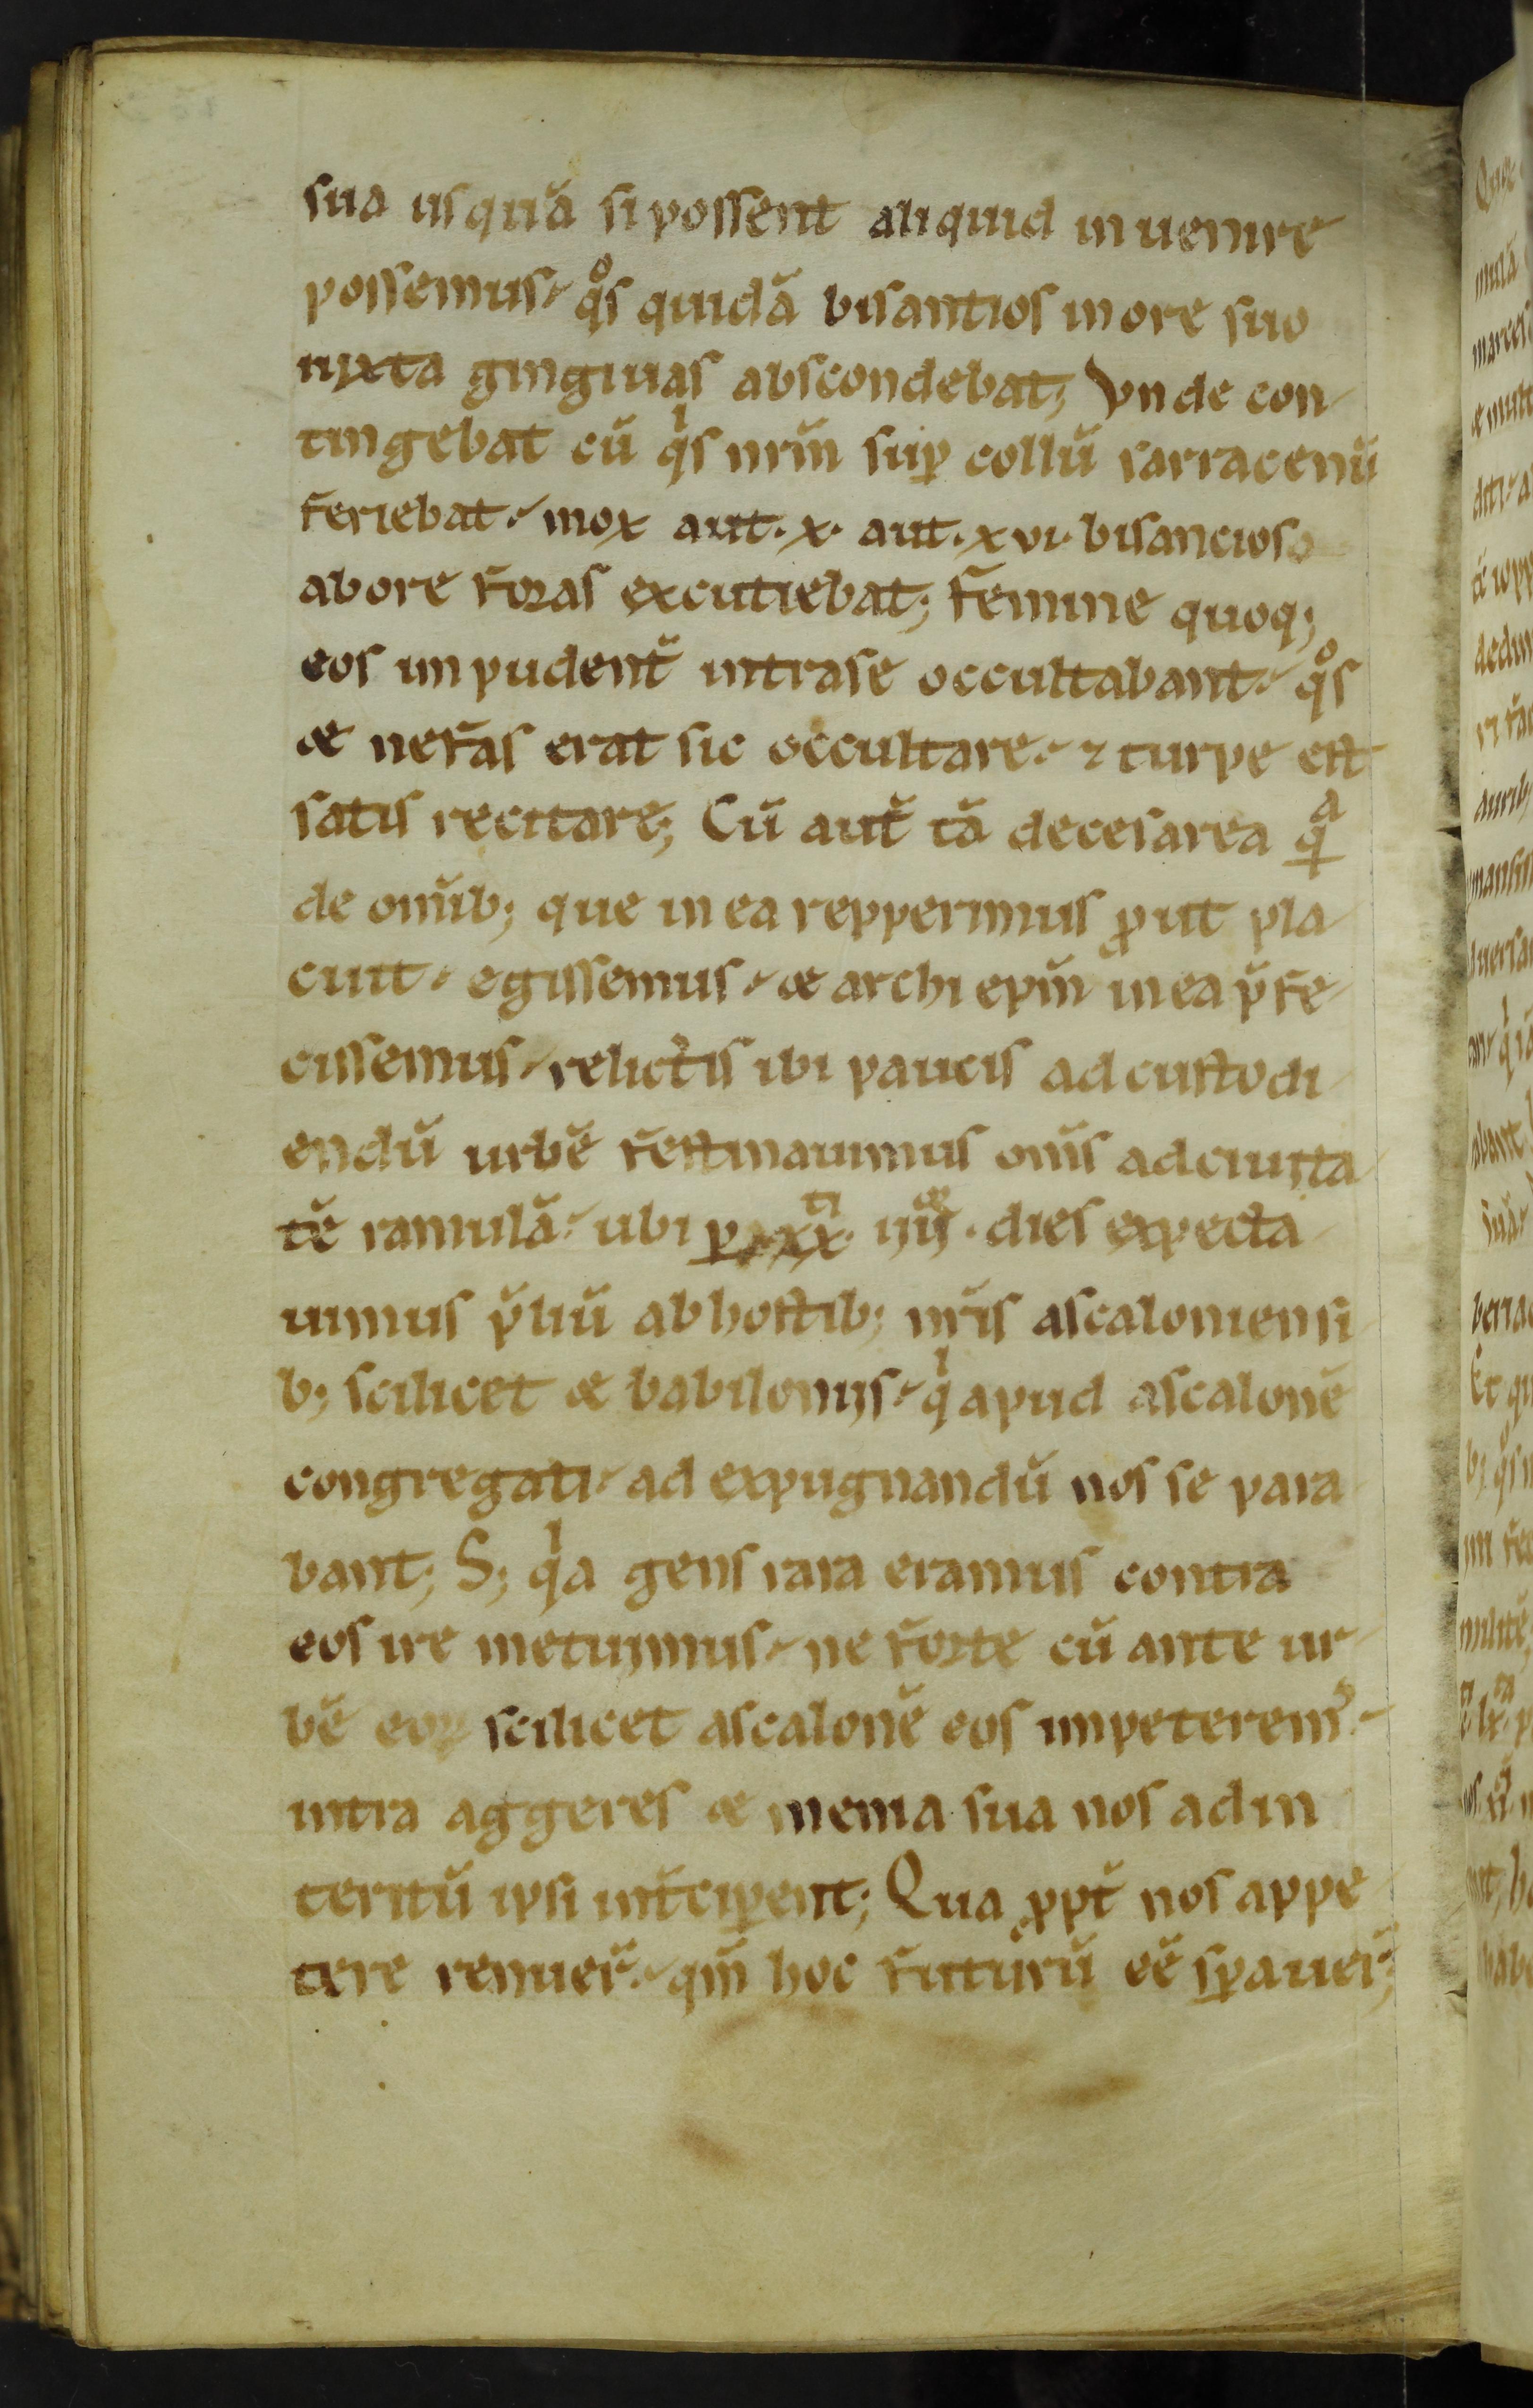 sua usquā si possent aliquid inuenire
possemus. qͦs quidā bisantios in ore suo
iuxta gingiuas abscondebat; Vnde con-
tingebat cū qͥs nrm̄ suꝑ collū sarracenū
feriebat. mox aut .x. aut .xvi. bisancios
ab ore foras excutiebat; Femine quoq;
eos impudent̄ intra se occultabant. qͦs
& nefas erat sic occultare. ⁊ turpe est
satis recitare; Cū aut̄ tā de cesarea qᵃ
de omīb; que in ea repperimus ꝓut pla-
cuit. egissemus. & archiepm̄ in ea p̄fe-
cissemus. relictis ibi paucis ad custodi-
endū urbē festinauimus om̄s ad ciuita-
tē ramulā. ubi ꝑ .xxᵗⁱ. iiijᵒʳ. dies expecta-
uimus p̄liū ab hostib; nr̄is ascaloniensi-
b; scilicet & babilonijs. qͥ apud ascalonē
congregati. ad expugnandū nos se para-
bant; S; qͥa gens rara eramus contra
eos ire metuimus. ne forte cū ante ur-
bē eoꝝ scilicet ascalonē eos impeterem᷒.
intra aggeres & menia sua nos ad in
teritū ipsi int̄ciꝑent; Qua ꝓpt̄ nos appe
tere renuer̄. qm̄ hoc futurū eē sꝑauer̄;